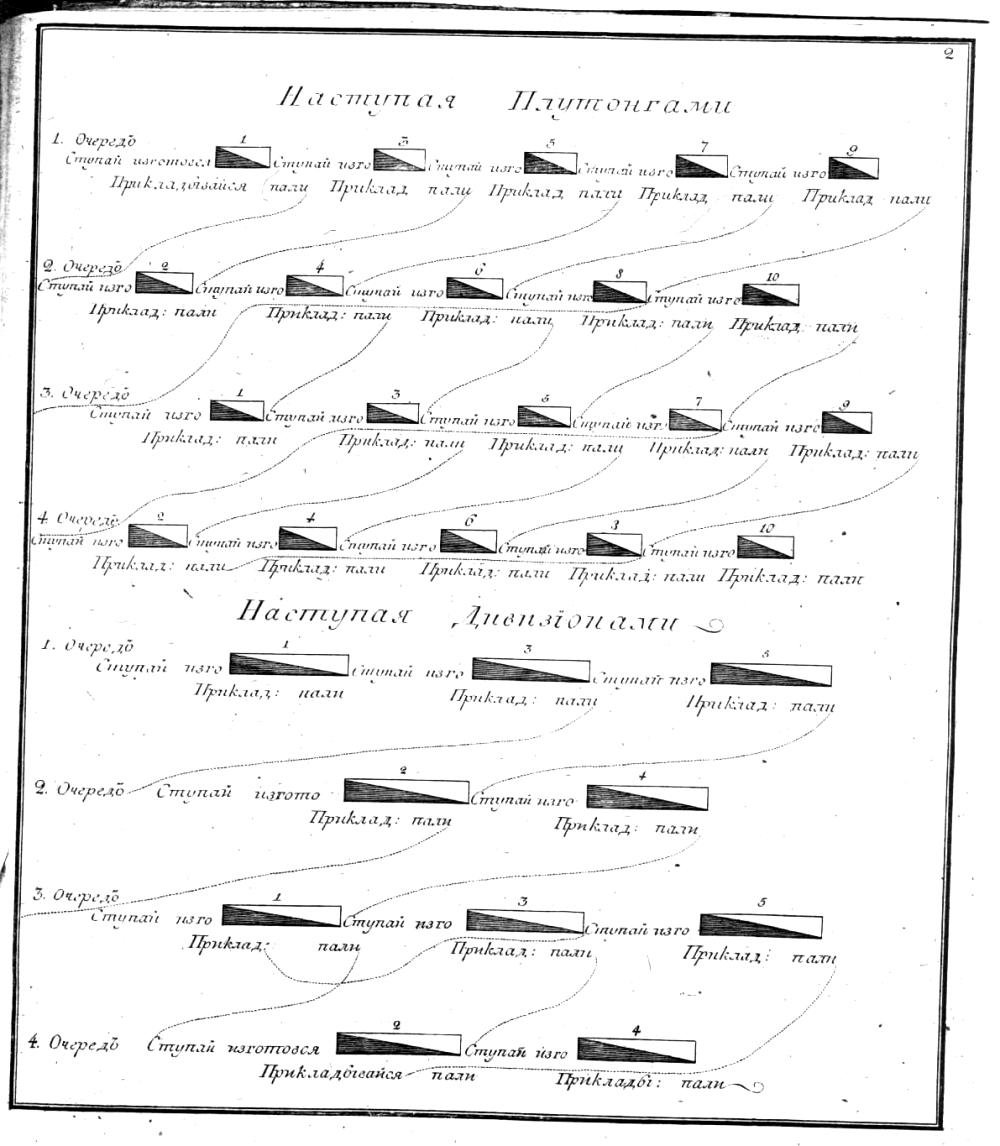 2
Наступая Плутонгами
1. Очередь
1 3 5 7 9
Ступай изготовся Ступай изго Ступай изго Ступай изго Ступай изго
Прикладывайся пали Приклад пали Приклад пали Приклад пали Приклад пали
2. Очередь
2 4 6 8 10
Ступай изго Ступай изго Ступай изго Ступай изго Ступай изго
Приклад: пали Приклад: пали Приклад: пали Приклад: пали Приклад: пали
3. Очередь
1 3 5 7 9
Ступай изго Ступай изго Ступай изго Ступай изг. Ступай изго
Приклад: пали Приклад: пали Приклад: пали Приклад: пали Приклад: пали
4. Очередь
2 4 6 8 10
Ступай изго Ступай изго Ступай изго Ступай изго Ступай изго
Приклад: пали Приклад: пали Приклад: пали Приклад: пали Приклад: пали
Наступая Дивизіонами
1. Очередь
1 3 5
Ступай изго Ступай изго Ступай изго
Приклад: пали Приклад: пали Приклад: пали
2 4
2. Очередь Ступай изгото Ступай изго
Приклад: пали Приклад: пали
3. Очередь
1 3 5
Ступай изго Ступай изго Ступай изго
Приклад: пали Приклад: пали Приклад: пали
2 4
4. Очередь Ступай изготовся Ступай изго
Прикладывайся пали Приклады: пали